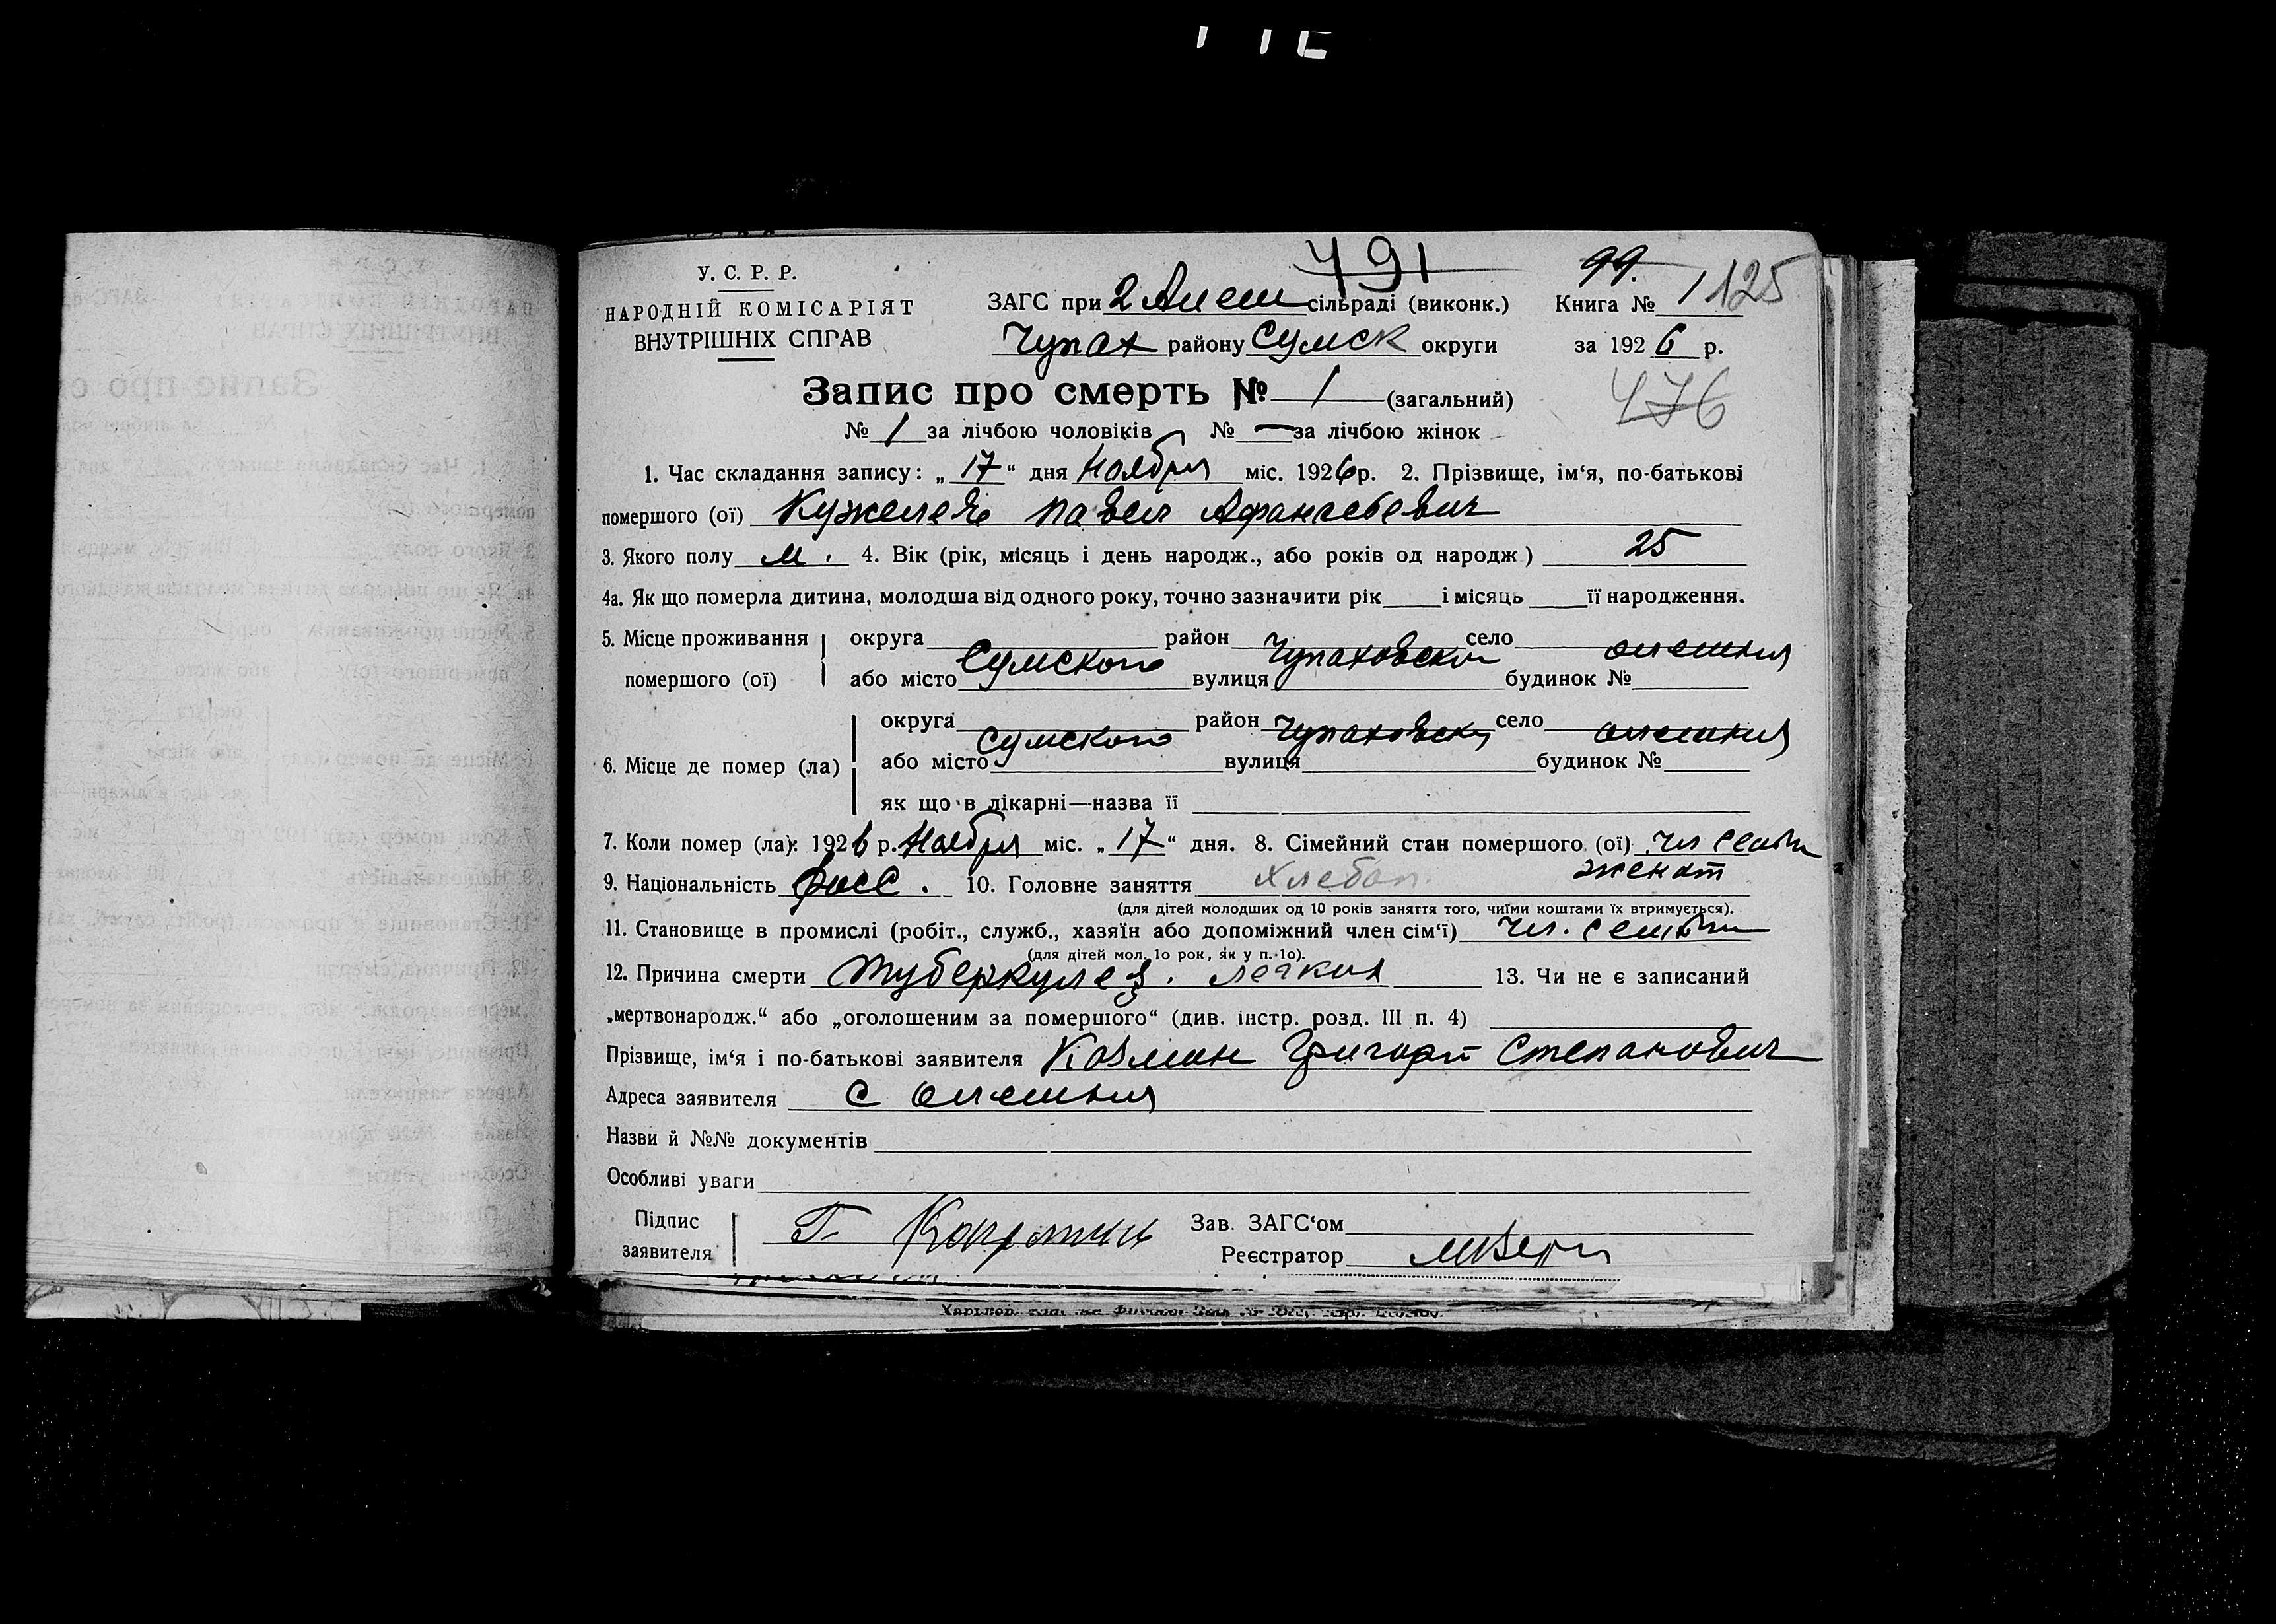 У. С. Р. Р.
НАРОДНІЙ КОМІСАРІЯТ
ВНУТРІШНІХ СПРАВ
491
99.
125
ЗАГС при 2 Алеш сільраді (виконк.) Книга № 1
Чупах району Сумск округи за 1926 р.
476
Запис про смерть № 1 (загальний)
№ 1 за лічбою чоловіків № — за лічбою жінок
1. Час складання запису: „17“ дня Ноября міс. 1926 р. 2. Прізвище, ім‘я, по-батькові
помершого (ої) Павел Афанасьевич
3. Якого полу м. 4. Вік (рік, місяць і день народж., або років од народж) 25
4а. Як що померла дитина, молодша від одного року, точно зазначити рік і місяць її народження.
5. Місце проживання округа Сумского район Чупаховски село олешня
помершого (ої) або місто вулиця будинок №
округа Сумского район Чупаховски село олешня
6. Місце де помер (ла) або місто вулиця будинок №
як що в лікарні—назва її
7. Коли помер (ла): 1926 р. Ноября міс. „17“ дня. 8. Сімейний стан помершого (ої) чл семьи
женат
9. Національність росс. 10. Головне заняття Хлебоп.
(для дітей молодших од 10 років заняття того, чиїми коштами їх втримується).
11. Становище в промислі (робіт., служб., хазяїн або допоміжний член сім‘ї) чл. семьи
(для дітей мол. 1о рок, як у п. 1о).
12. Причина смерти туберкулез. легких 13. Чи не є записаний
„мертвонародж.“ або „оголошеним за помершого“ (див. інстр. розд. III п. 4)
Прізвище, ім‘я і по-батькові заявителя Григорй Степанович
Адреса заявителя с олешня
Назви й №№ документів
Особливі уваги
Підпис
заявителя Г.
Зав. ЗАГС‘ом
Реєстратор